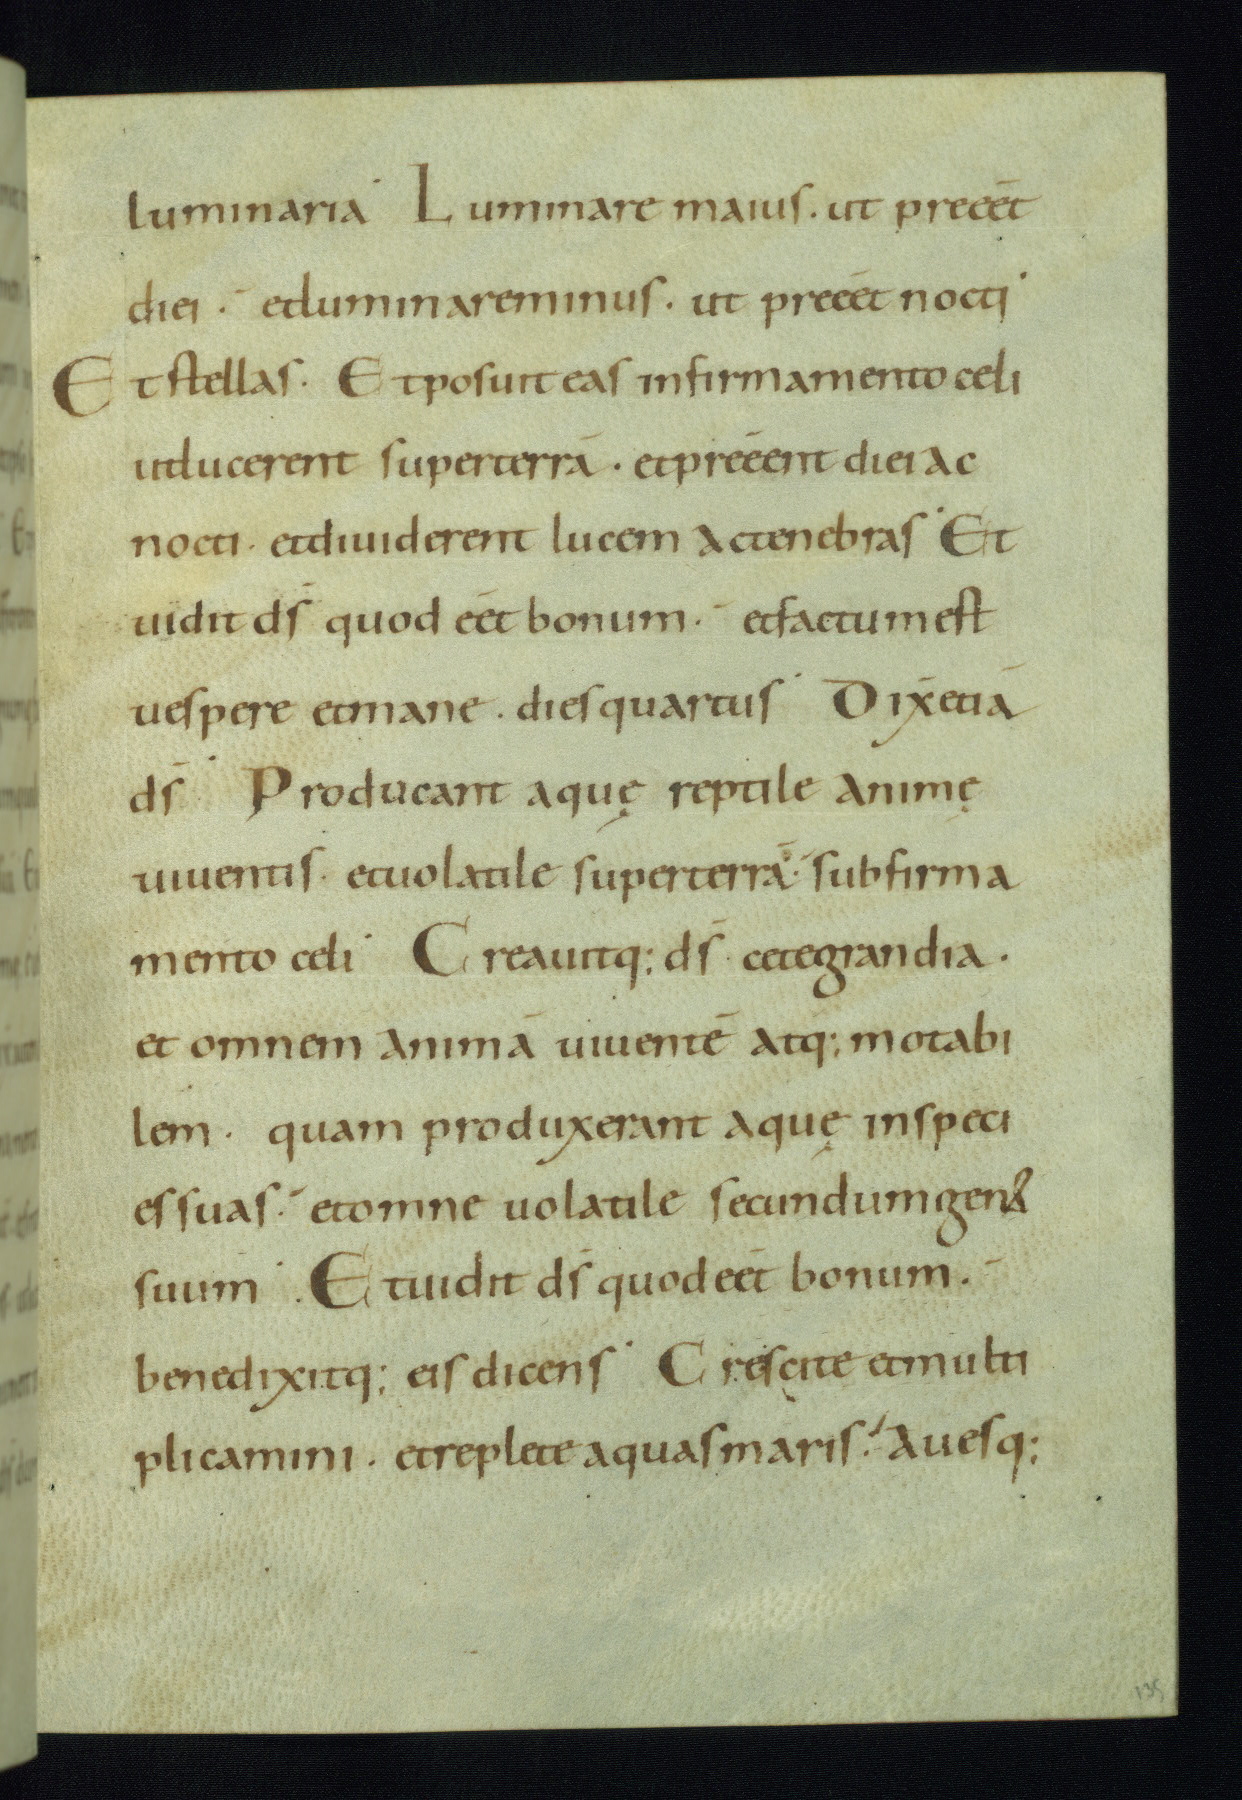 luminaria· Luminare maius. ut preéēt
diei ·̄ etluminareminus. ut preéēt nocti·
Et stellas. Et posuit eas infirmamento celi
utlucerent superterrā. etpreéent diei ac
nocti. etdiuiderent lucem actenebras· Et
uidit ds̄ quod eēt bonum ·̄ etfactumest
uespere etmane. diesquartus· Dix̄etiā
ds̄· Producant aquę reptile animę
uiuentis. etuolatile superterrā·̄ subfirma
mento celi· Creauitq; ds̄ cetegrandia.
et omnem animā uiuentē atq; motabi
lem. quam produxerant aquę inspeci
essuas·̄ etomne uolatile secundumgenꝰ
suum· Et uidit ds̄ quodeēt bonum ·̄
benedixitq; eis dicens· Crescite etmulti
plicamini. etreplete aquasmaris·̄ Auesq;
135